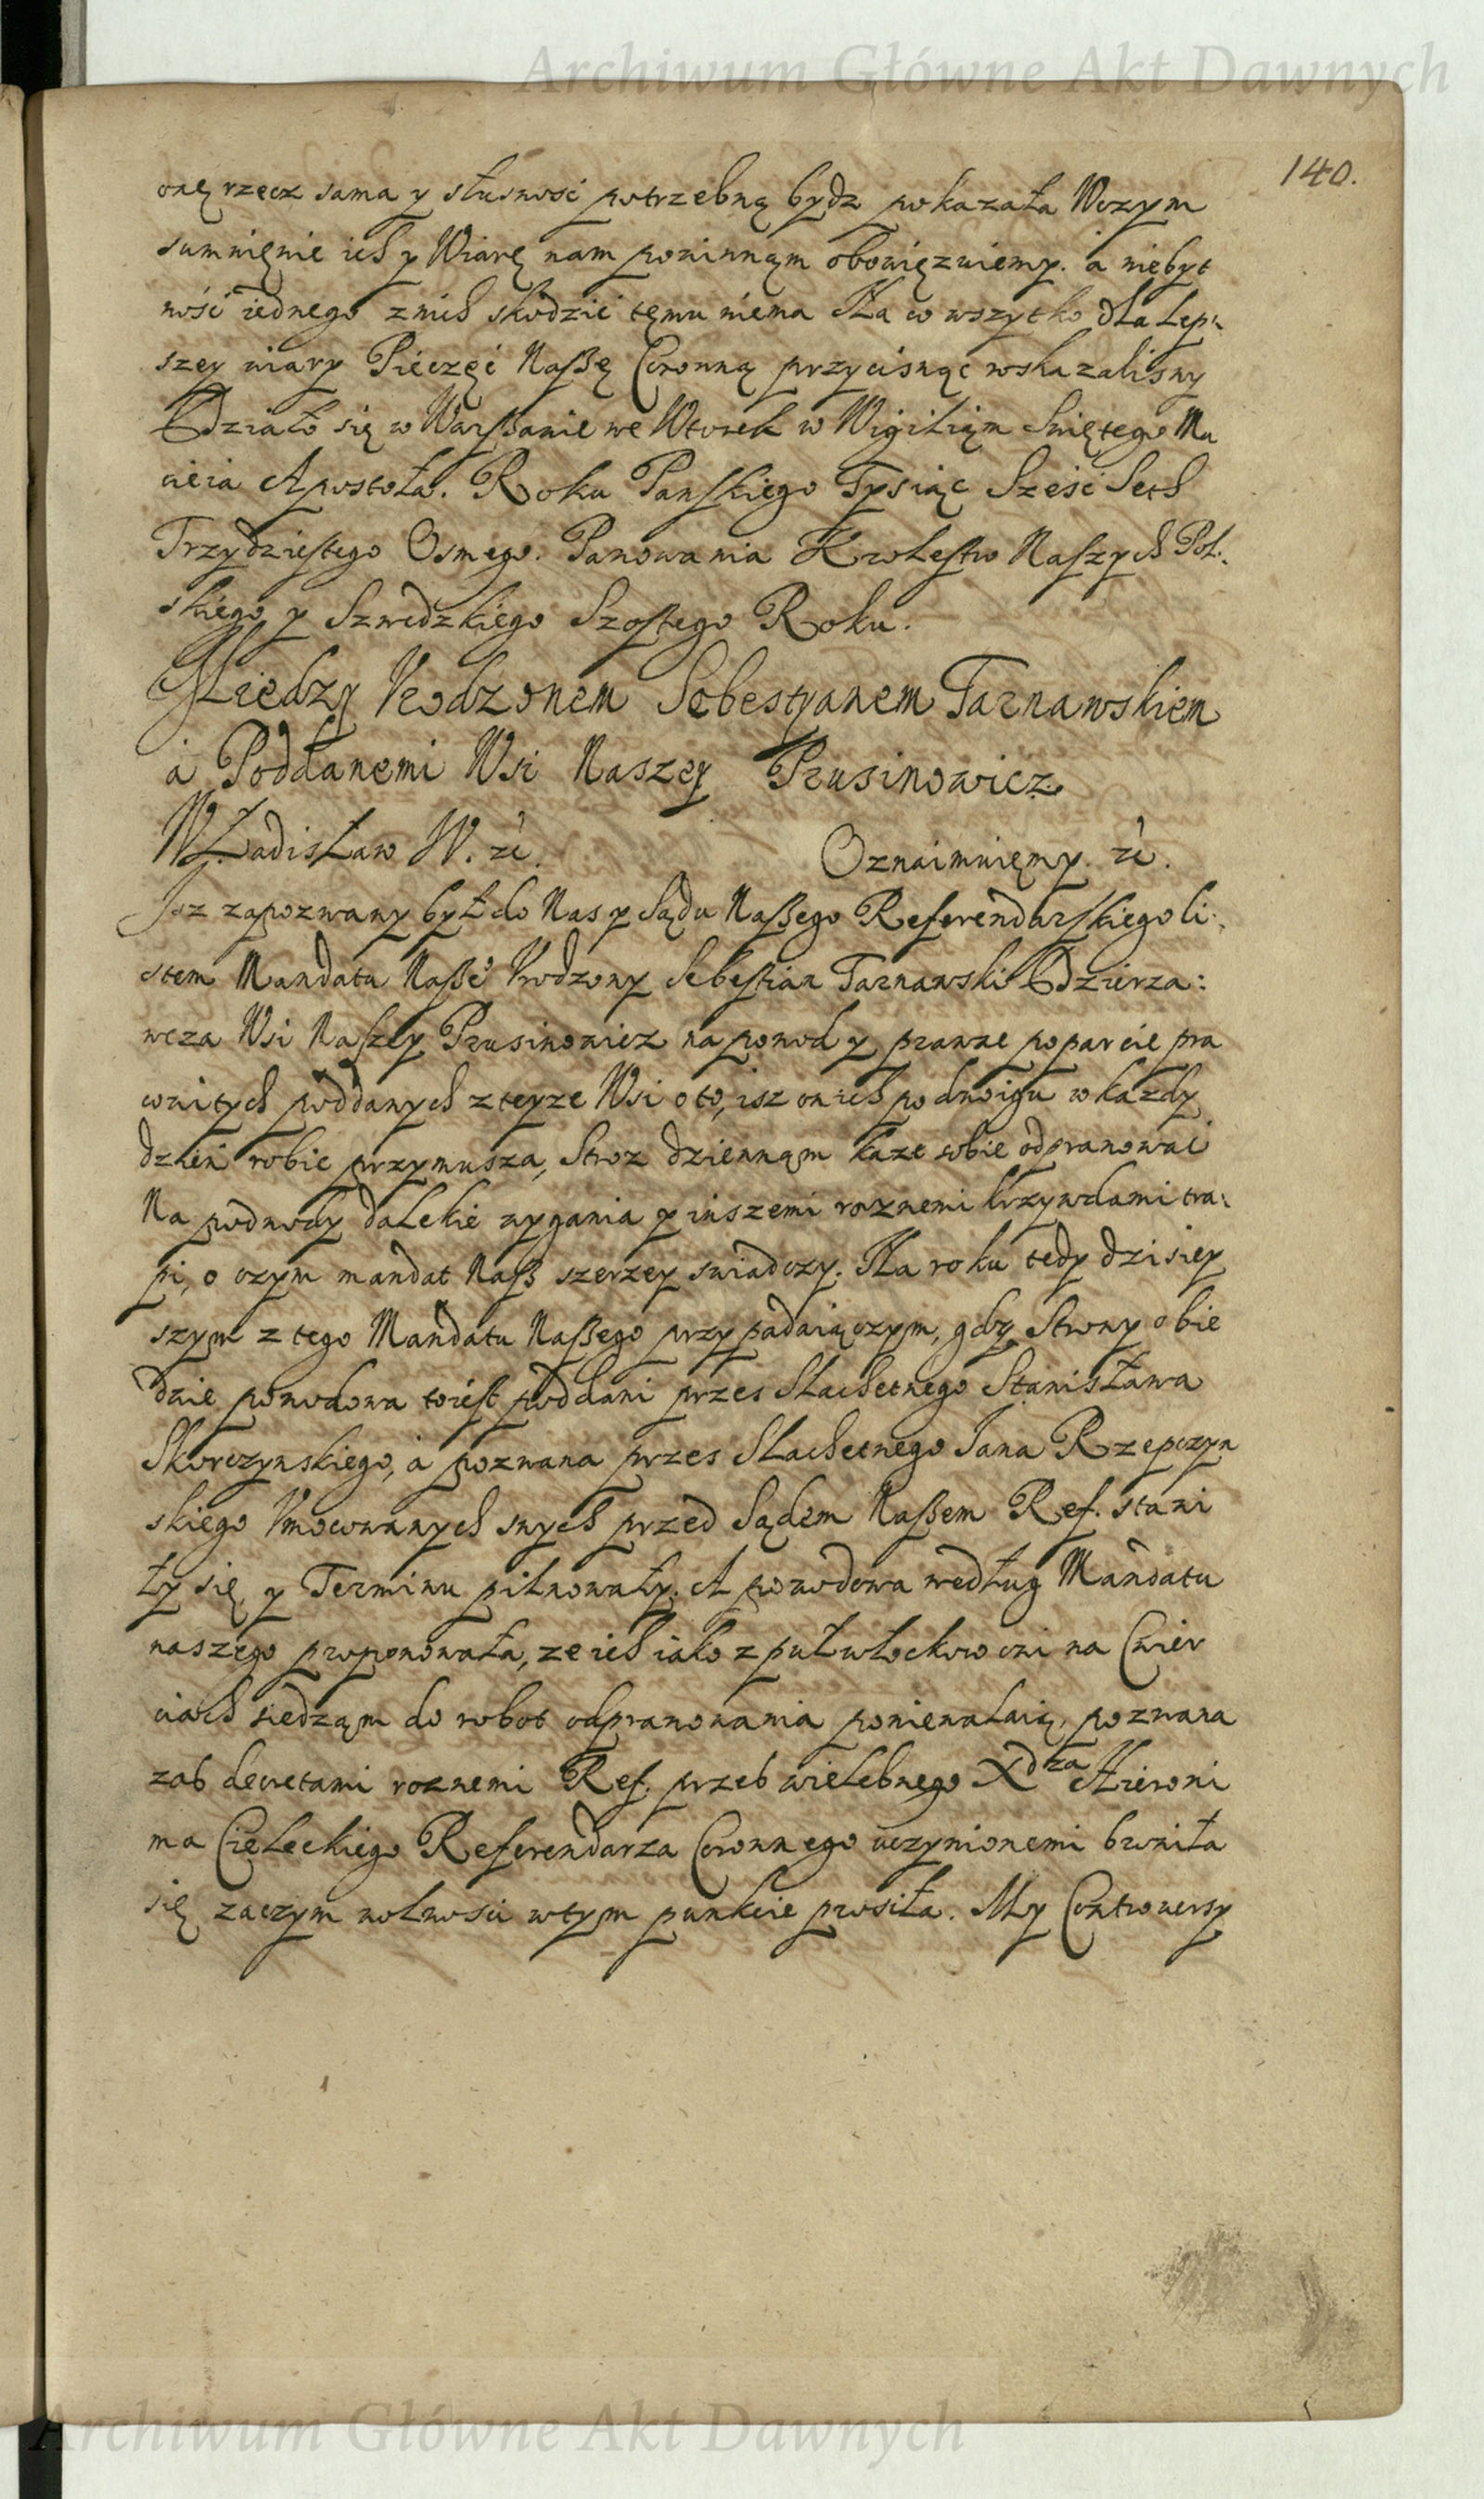 Archiwum Główne Akt Dawnych
140.
onę rzecz sama y słusnosć potrzebną bydz pokazała Wczym
sumnięnie ich y Wiarę nam powinnąm obowięzuiemy. a niebyt
ność iednego znich skodzić tęmu niema Na co wszytko dla lep:
szey wiary Pieczęć Naßę Coronną przycisnąc wskazalismy
Działo się w Warßawie we Wtorek w Wigilią Swiętego Ma
cieia Apostoła. Roku Panskiego Tysiąc Szesc Seth
Trzydziestego Osmego. Panowania Krolestw Naszych Pol:
skiego y Szwedzkiego Szostego Roku.
Między Vrodzonem Sebestyanem Tarnawskiem
a Poddanemi Wsi Naszey Prusinowicz
Władisław IV. &c. Oznaimuięmy. &c.
Isz zapozwany był do Nas y Sądu Naßego Referendarskiego li:
stem Mandatu Naße° Vrodzony Sebestian Tarnawski Dzierza:
wcza Wsi Naszey Prusinowicz na powod y prawne poparcie pra
cowitych poddanych z teyze Wsi o to, isz on ich po dwoigu w kazdy
dzień robic przymusza, Stroz dziennąm kaze sobie odprawować
Na podwody dalekie wygania y inszemi roznemi krzywdami tra:
pi, o czym mandat Naß szerzey swiadczy. Na roku tedy dzisiey
szym z tego Mandatu Naßego przypadaiączym, gdy Strony obie
dwie powodowa toiest poddani przes Slachetnego Stanisława
Skorczynskiego, a pozwana przes Slachetnego Jana Rzepczyn
skiego Vmocowanych swych przed Sądem Naßem Ref. stawi
ły się y Terminu pilnowały. A powodowa według Mandatu
naszego proponowała, ze ich iako z pułwłockow oni na Cwier
ciach siedząm do robot odprawowania poniewalaią, pozwana
zas decretami roznemi Ref. przes wielebnego Xdza Hieroni
ma Cieleckiego Referendarza Coronnego uczynionemi broniła
się zaczym wolnosci wtym punkcie prosiła. My Controwersy
Archiwum Główne Akt Dawnych